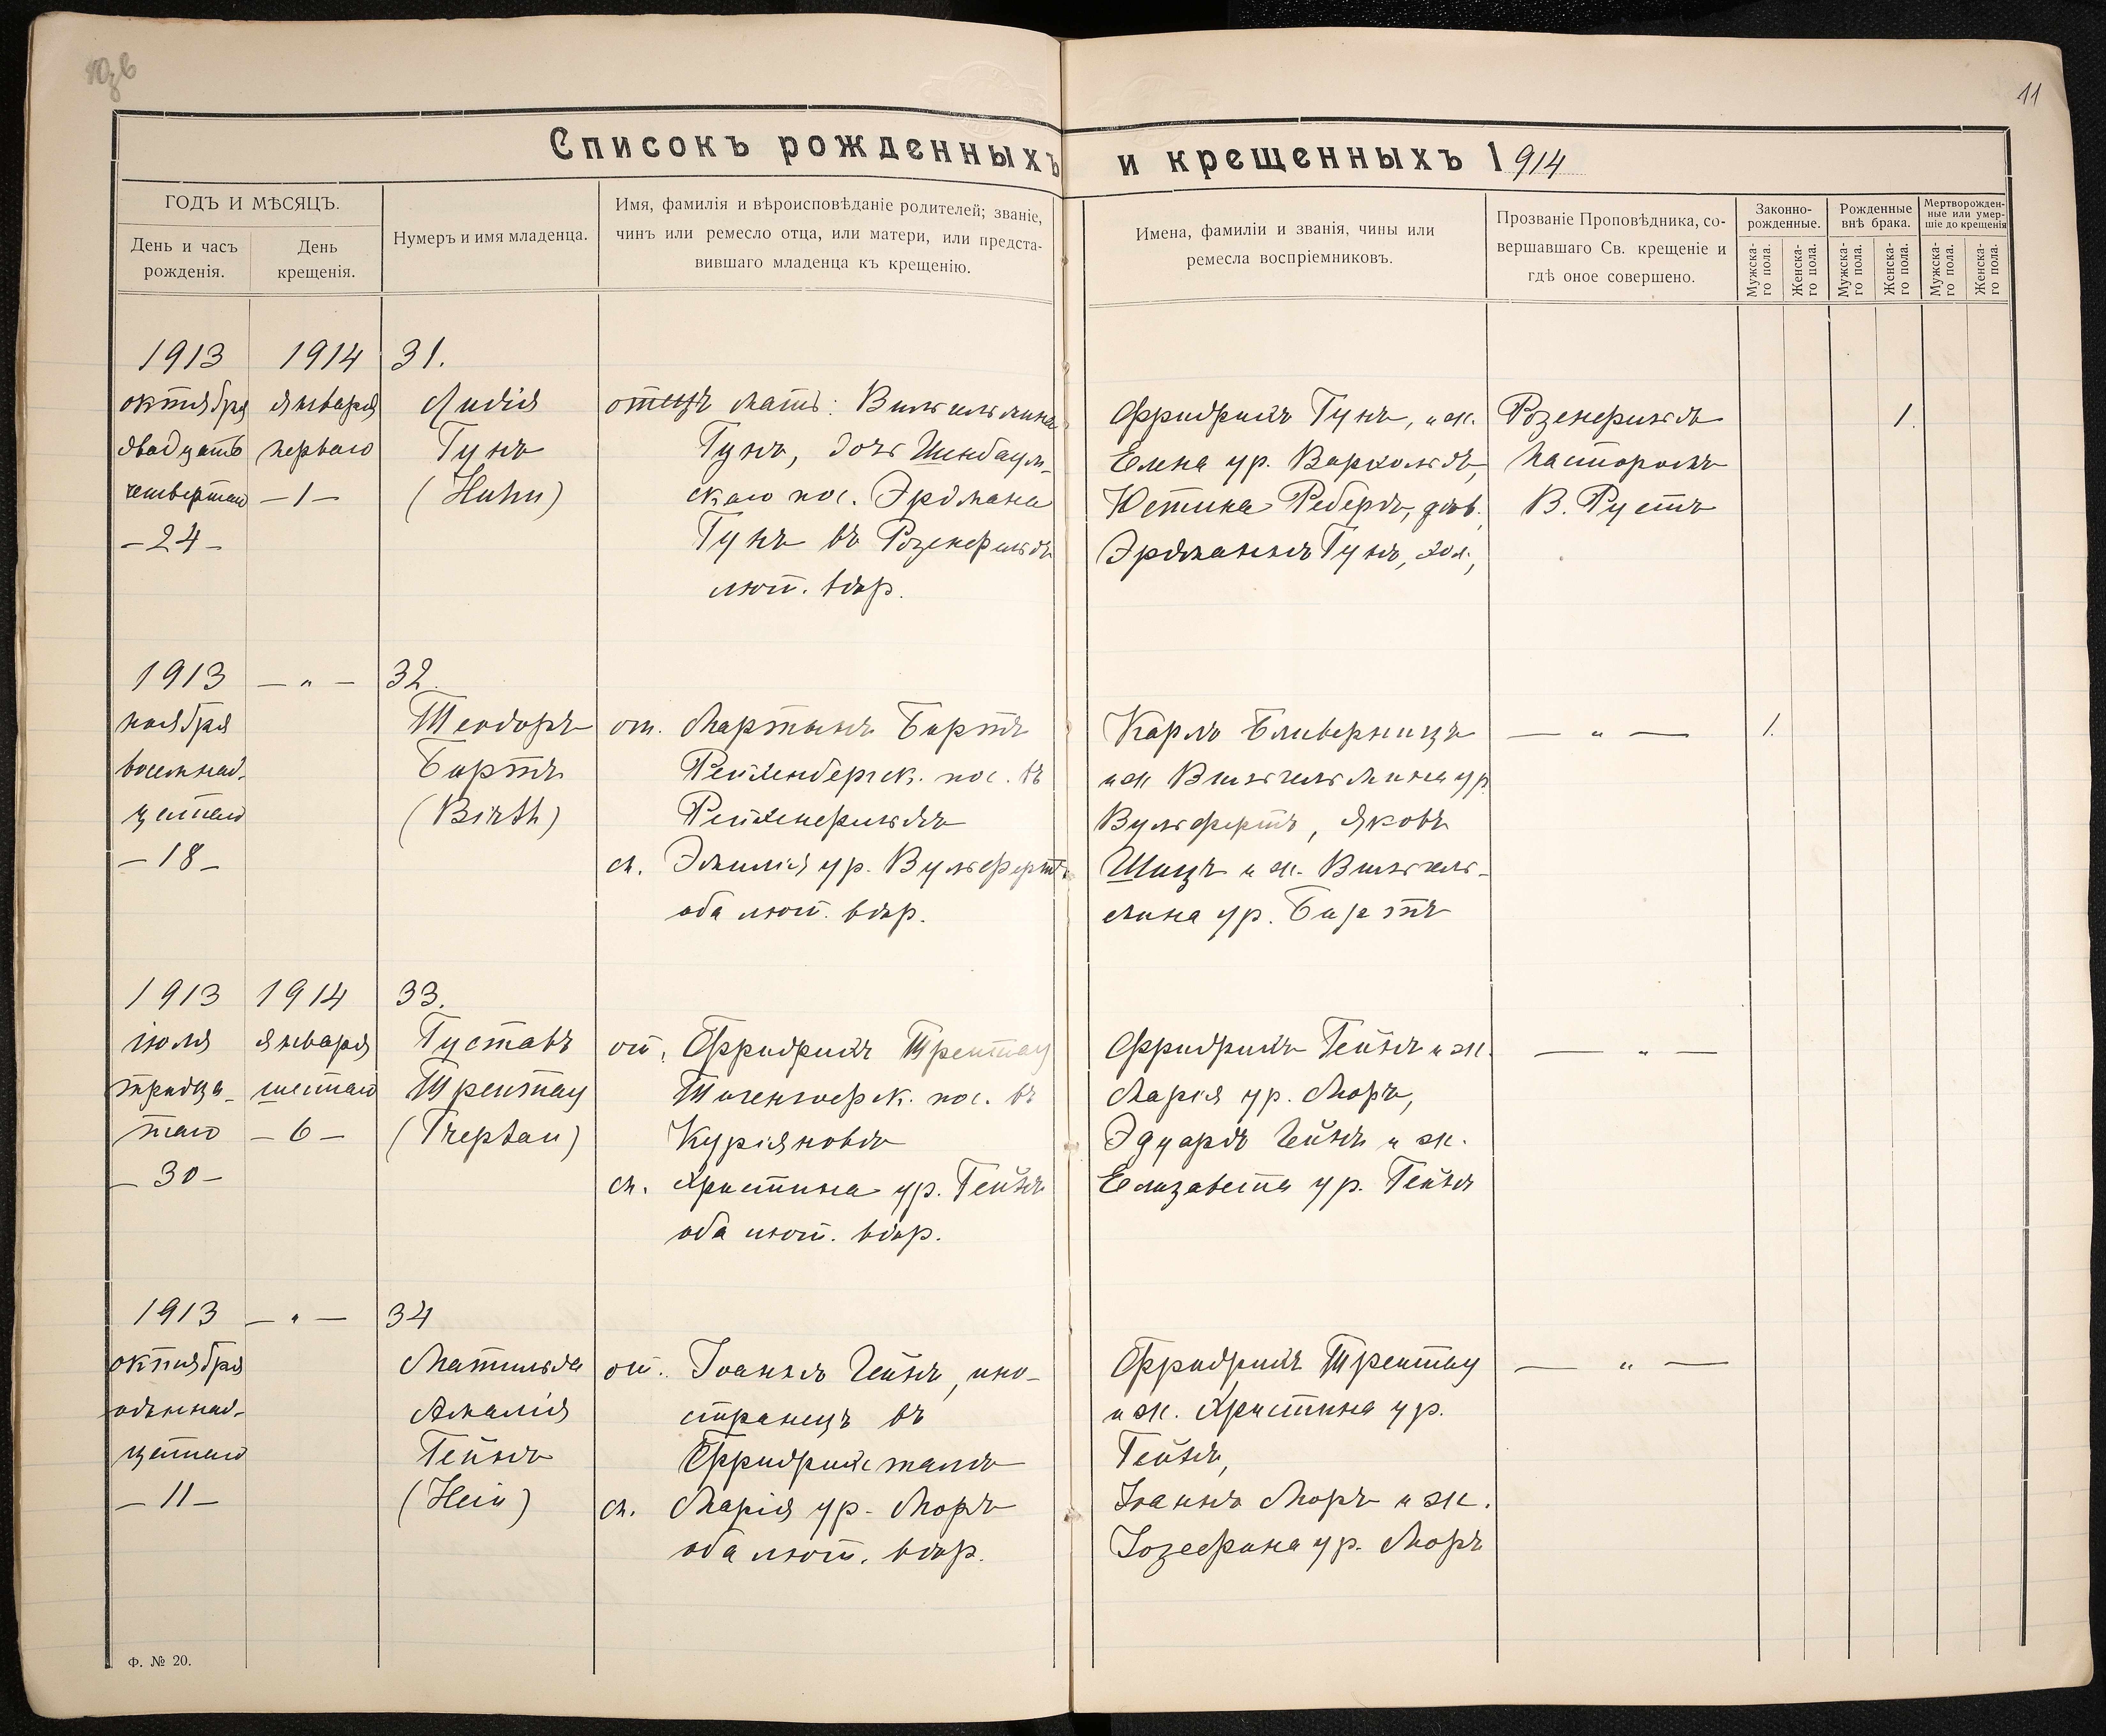 11
Списокъ рожденныхъ и крещенныхъ 1914
ГОДЪ И МѢСЯЦЪ.
День и часъ рожденія.
День крещенія.
Нумеръ и имя младенца.
Имя, фамилія и вѣроисповѣданіе родителей; званіе,
чинъ или ремесло отца, или матери, или предста-
вившаго младенца къ крещенію.
Имена, фамиліи и званія, чины или
ремесла воспріемниковъ.
Прозваніе Проповѣдника, со-
вершавшаго Св. крещеніе и
гдѣ оное совершено.
Законно-
рожденные.
Рожденные
внѣ брака.
Мертворожден-
ные или умер-
шіе до крещенія
Мужска-
го пола.
Женска-
го пола.
Мужска-
го пола.
Женска-
го пола.
Мужска-
го пола.
Женска-
го пола.
1913
октября
двадцать
четвертаго
-24-
1914
января
перваго
-1-
31.
Лидія
Гунъ
(Huhn)
отецъ мать: Вильгельмина
Гунъ, дочь
скаго пос. Эрдмана
Гунъ въ Розенфельдѣ
лют. вѣр.
Фридрихъ Гунъ, и ж.
Елена ур.
Юстина дѣв.
Эрдманнъ Гунъ, хол.,
Розенфельдъ
Пасторомъ
В. Рустъ
1.
1913
ноября
восемнад-
цатаго
-18-
— „ —
32.
Теодоръ
Биртъ
(Birth)
от. Мартынъ Биртъ
Рейхенбергск. пос. въ
Рейхенфельдѣ
м. Эмилія ур. Вульфертъ
оба лют. вѣр.
Карлъ
и ж Вильгельмина ур.
Вульфертъ, Яковъ
Шицъ и ж. Вильгель-
мина ур. Биртъ
— „ —
1.
1913
іюля
тридца-
таго
-30-
1914
января
шестаго
-6-
33.
Густавъ
Трептау
(Treptau)
от. Фридрихъ Трептау
пос. въ
Курiяновѣ
м. Христина ур. Гейнъ
оба лют. вѣр.
Фридрихъ Гейнъ и ж.
Марія ур. Моръ,
Эдуардъ Гейнъ и ж.
Елизавета ур. Гейнъ
— „ —
1913
октября
одиннад-
цатаго
-11-
— „ —
34
Матильда
Амалія
Гейнъ
(Hein)
от. Іоаннъ Гейнъ, ино-
странецъ въ
Фридрихсталѣ
м. Марія ур. Моръ
оба лют. вѣр.
Фридрихъ Трептау
и ж. Христина ур.
Гейнъ,
Іоаннъ Моръ и ж.
Іозефина ур. Моръ
— „ —
Ф. № 20.